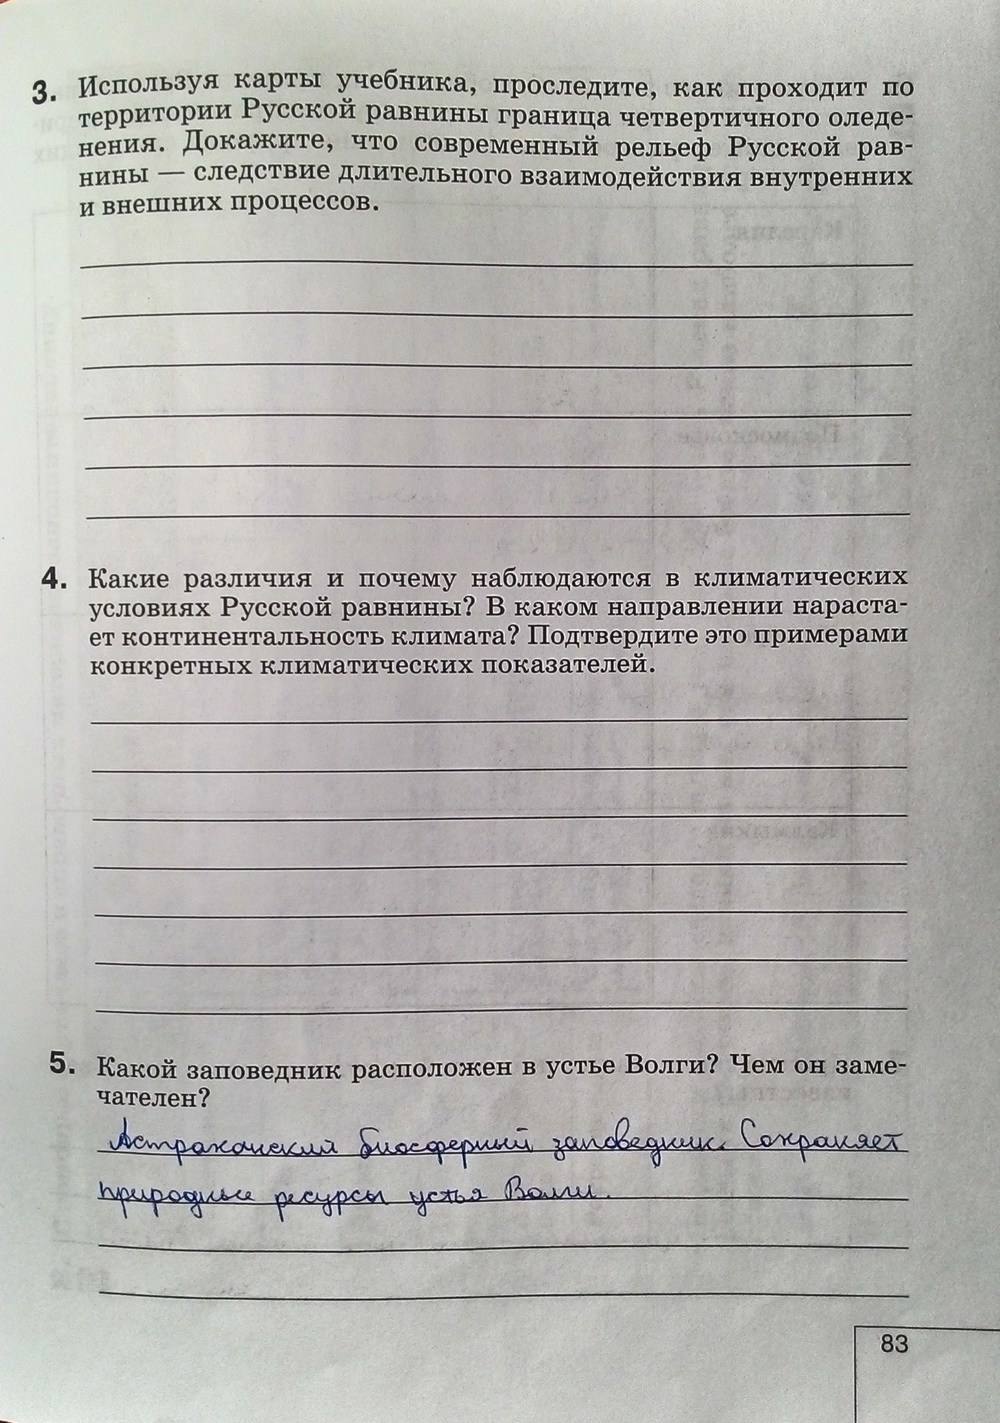 3. Используя карты учебника, проследите, как проходит по
территории Русской равнины граница четвертичного оледе-
нения. Докажите, что современный рельеф Русской рав-
нины — следствие длительного взаимодействия внутренних
и внешних процессов.
4. Какие различия и почему наблюдаются в климатических
условиях Русской равнины? В каком направлении нараста-
ет континентальность климата? Подтвердите это примерами
конкретных климатических показателей.
5. Какой заповедник расположен в устье Волги? Чем он заме-
чателен?
Астраханский биосферный заповедник. Сохраняет
природные ресурсы устья Волги.
83